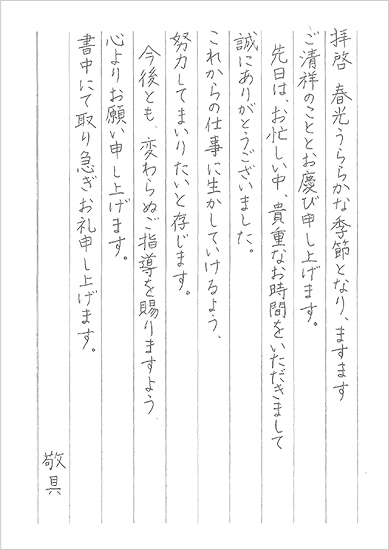 拝啓 春光うららかな季節となり、ますます
ご清祥のこととお慶び申し上げます。
先日は、お忙しい中、貴重なお時間をいただきまして
誠にありがとうございました。
これからの仕事に生かしていけるよう、
努力してまいりたいと存じます。
今後とも、変わらぬご指導を賜りますよう
心よりお願い申し上げます。
書中にて取り急ぎお礼申し上げます。
敬具